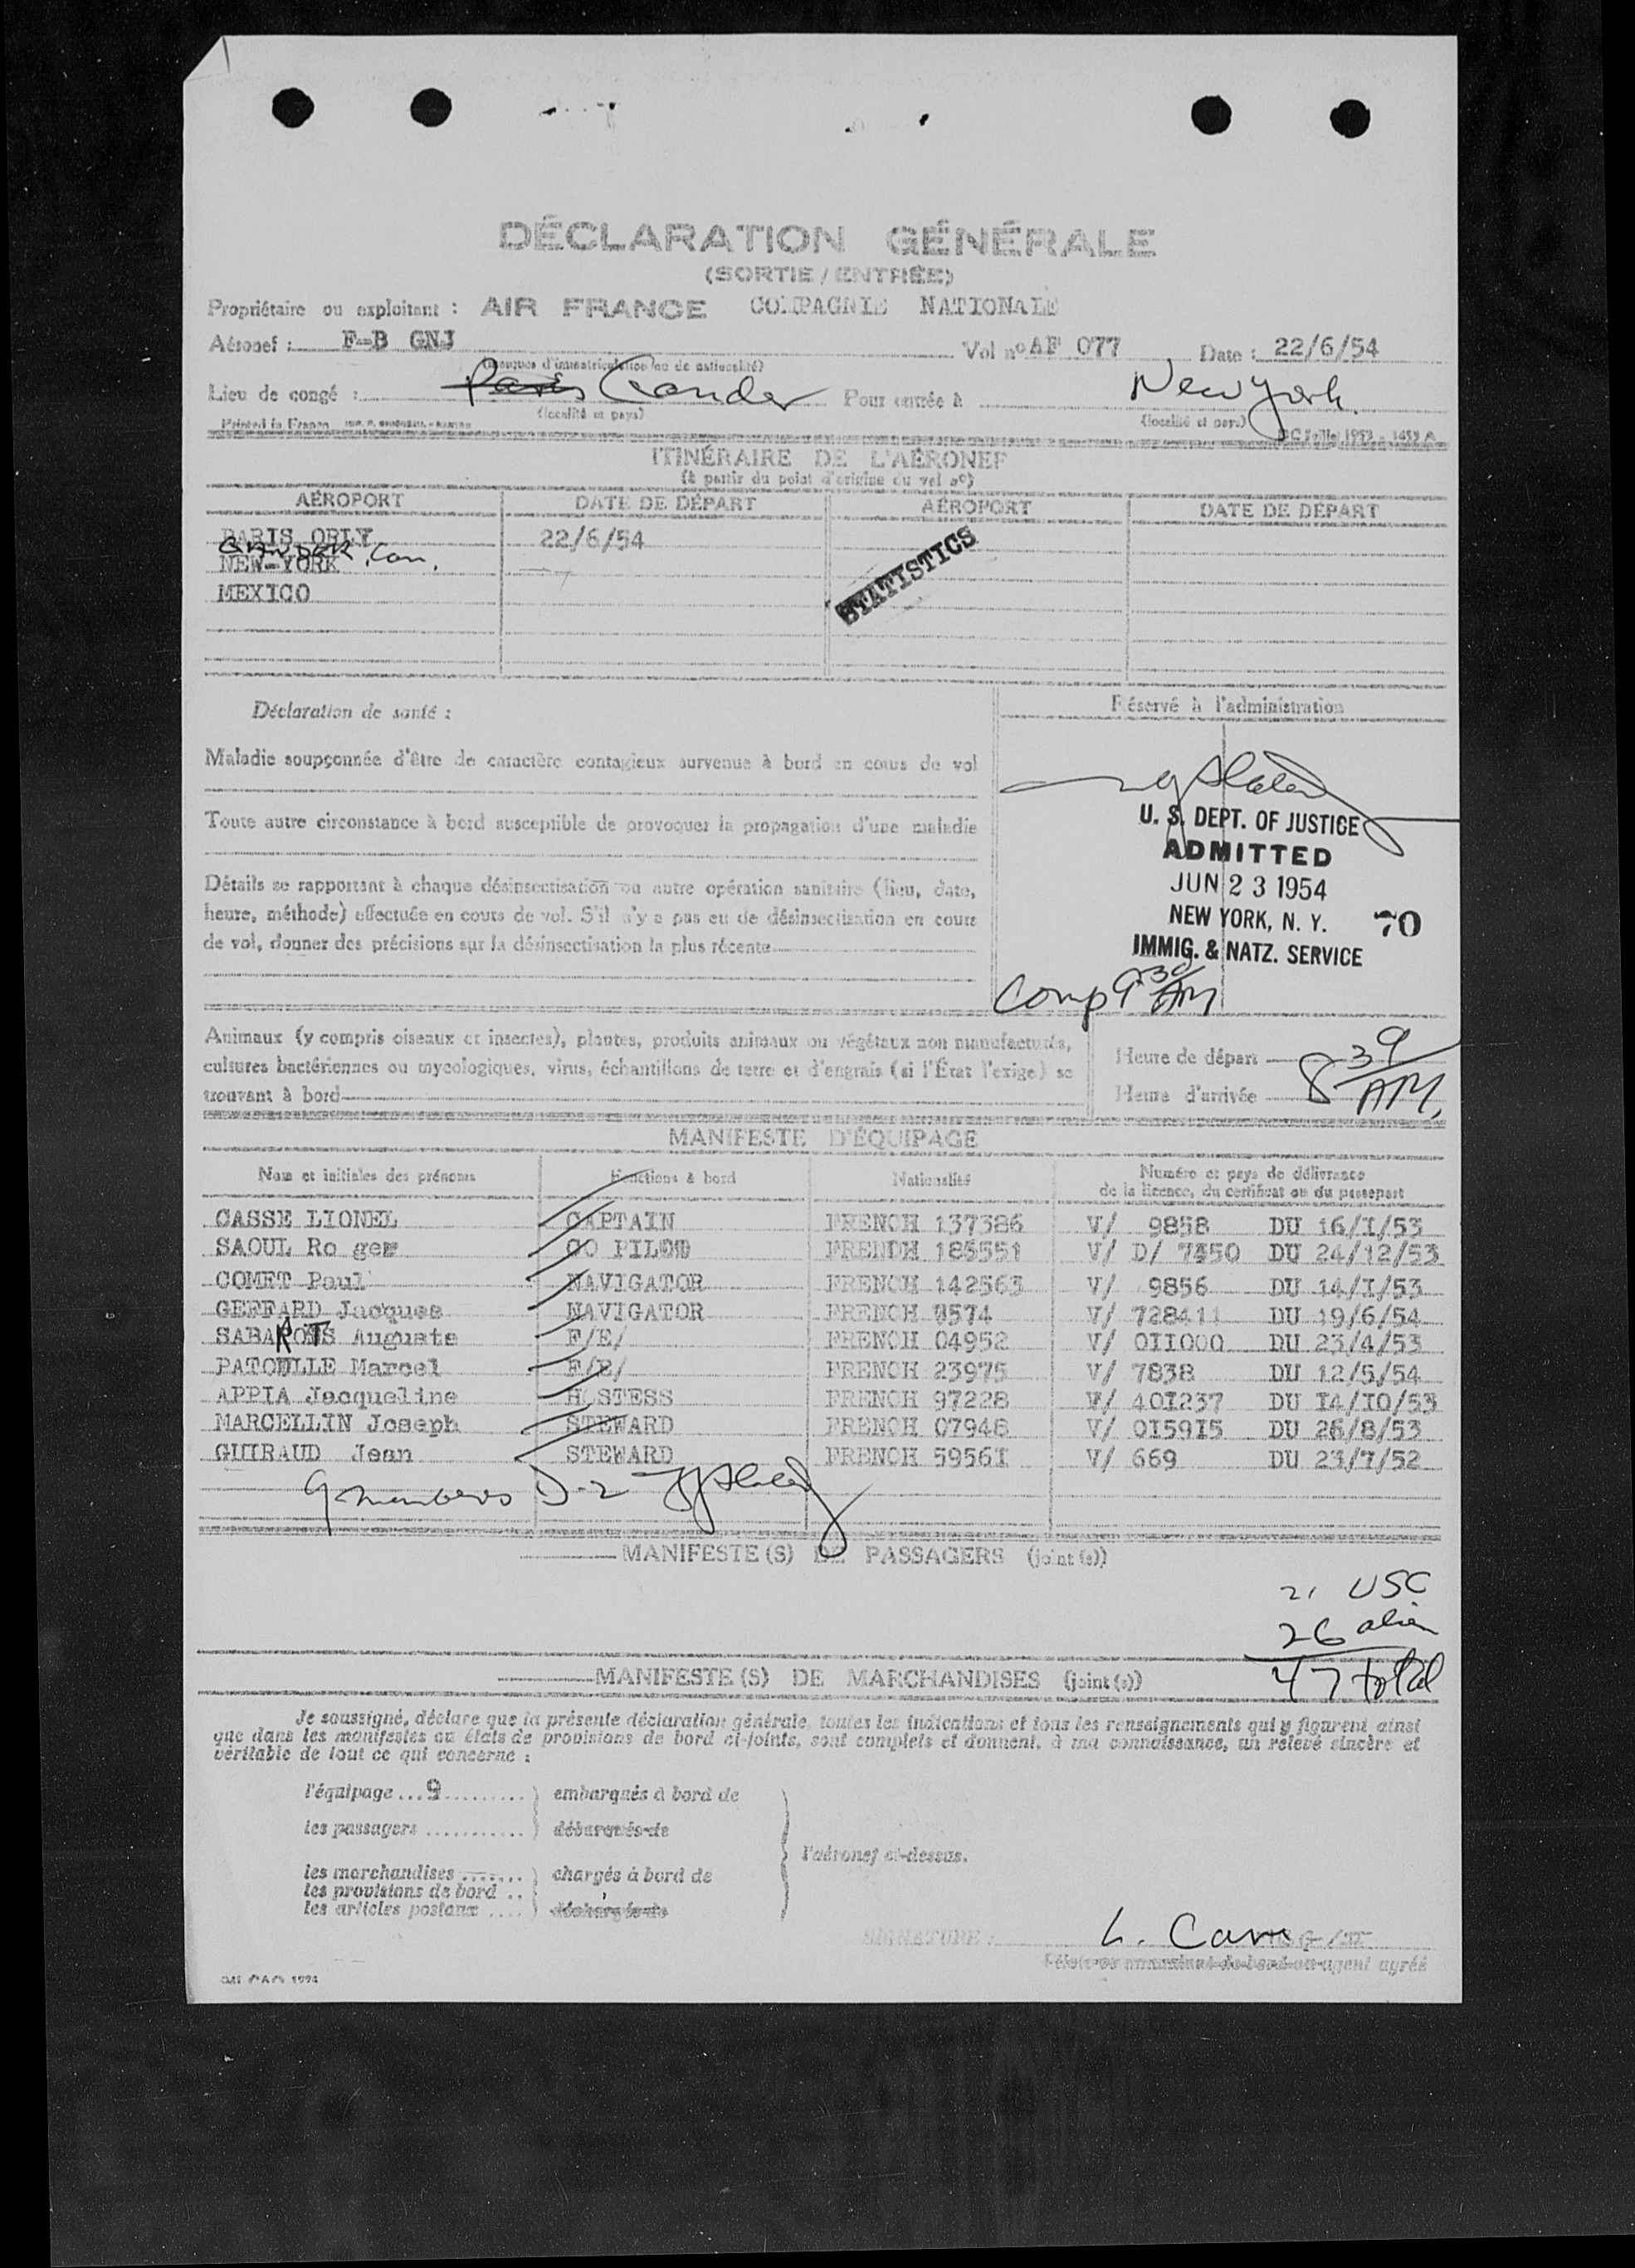 DÉCLARATION GÉNÉRALE
(SORTIE / ENTRÉE)
Propriétaire ou exploitant : AIR FRANCE COMPAGNIE NATIONALE
Aéronef : F-B GNJ Vol nº AF 077 Date : 22/6/54
(marques d'immatriculation ou de nationalité)
Lieu de congé : Paris Gander Pour entrée à New York
(localité et pays) (localité et pays)
Printed in France
ITINÉRAIRE DE L'AÉRONEF
(à partir du point d'origine du vol nº)
AÉROPORT DATE DE DÉPART AÉROPORT DATE DE DÉPART
PARIS ORLY 22/6/54
GANDER Can.
NEW-YORK
MEXICO
STATISTICS
Déclaration de santé : Réservé à l'administration
Maladie soupçonnée d'être de caractère contagieux survenue à bord en cours de vol
Toute autre circonstance à bord susceptible de provoquer la propagation d'une maladie
Détails se rapportant à chaque désinsectisation ou autre opération sanitaire (lieu, date,
heure, méthode) effectuée en cours de vol. S'il n'y a pas eu de désinsectisation en cours
de vol, donner des précisions sur la désinsectisation la plus récente
U. S. DEPT. OF JUSTICE
ADMITTED
JUN 23 1954
NEW YORK, N. Y. 70
IMMIG. & NATZ. SERVICE
Comp 9 30 AM
Animaux (y compris oiseaux et insectes), plantes, produits animaux ou végétaux non manufacturés,
cultures bactériennes ou mycologiques, virus, échantillons de terre et d'engrais (si l'État l'exige) se
trouvant à bord
Heure de départ
Heure d'arrivée 8 39 AM.
MANIFESTE D'ÉQUIPAGE
Nom et initiales des prénoms Fonctions à bord Nationalité Numéro et pays de délivrance
de la licence, du certificat ou du passeport
CASSE LIONEL CAPTAIN FRENCH 137386 V/ 9858 DU 16/I/53
SAOUL Ro ger CO PILOT FRENCH 186551 V/ D/ 7450 DU 24/12/53
COMET Paul NAVIGATOR FRENCH 142563 V/ 9856 DU 14/I/53
GEFFARD Jacques NAVIGATOR FRENCH 9574 V/ 728411 DU 19/6/54
SABAROTS Auguste F/E/ FRENCH 04952 V/ OII000 DU 23/4/53
PATOUILLE Marcel F/E/ FRENCH 23975 V/ 7838 DU 12/5/54
APPIA Jacqueline HOSTESS FRENCH 97228 V/ 40I237 DU I4/IO/53
MARCELLIN Joseph STEWARD FRENCH 07948 V/ OI59I5 DU 26/8/53
GUIRAUD Jean STEWARD FRENCH 5956I V/ 669 DU 23/7/52
9 members D-2
MANIFESTE (S) DE PASSAGERS (joint (s))
21 USC
26 alien
47 total
MANIFESTE (S) DE MARCHANDISES (joint (s))
Je soussigné, déclare que la présente déclaration générale, toutes les indications et tous les renseignements qui y figurent ainsi
que dans les manifestes ou états de provisions de bord ci-joints, sont complets et donnent, à ma connaissance, un relevé sincère et
véritable de tout ce qui concerne :
l'équipage ... 9 ......... ) embarqués à bord de
les passagers ........... ) débarqués de
l'aéronef ci-dessus.
les marchandises ....... ) chargés à bord de
les provisions de bord ..
les articles postaux .... ) déchargés de
SIGNATURE :
Pilote ou commandant de bord ou agent agréé